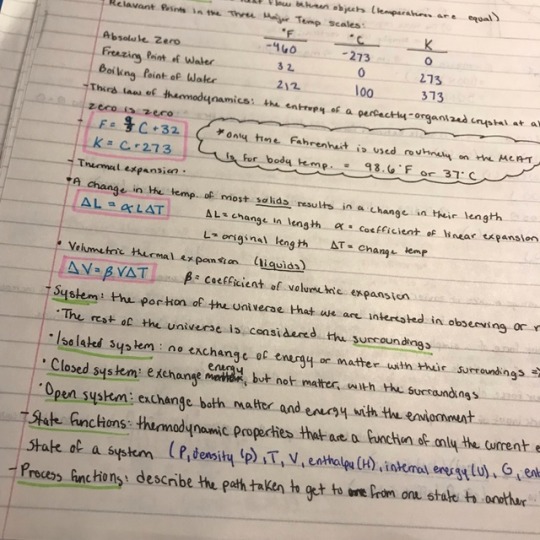 heat flow between objects (temperatures are equal)
Relavant Points in the Three Major Temp Scales:
°F °C K
Absolute Zero -460 -273 0
Freezing Point of Water 32 0 273
Boiling Point of Water 212 100 373
-Third law of thermodynamics: the entropy of a perfectly-organized crystal at a
zero is zero
- F = 9/5 C + 32
K = C + 273
*only time Fahrenheit is used routinely on the MCAT
is for body temp. = 98.6°F or 37°C
-Thermal expansion.
•A change in the temp. of most solids results in a change in their length
ΔL = αLΔT ΔL = change in length α = coefficient of linear expansion
L = original length ΔT = change temp
• Volumetric thermal expansion (liquids)
ΔV = βVΔT β = coefficient of volumetric expansion
-System: the portion of the universe that we are interested in observing or
•The rest of the universe is considered the surroundings
•Isolated system: no exchange of energy or matter with their surroundings =>
•Closed system: exchange energy, but not matter, with the surroundings
•Open system: exchange both matter and energy with the enviornment
-State functions: thermodynamic properties that are a function of only the current e
state of a system (P, density (ρ), T, V, enthalpy (H), internal energy (U), G, ent
-Process functions: describe the path taken to get to from one state to another